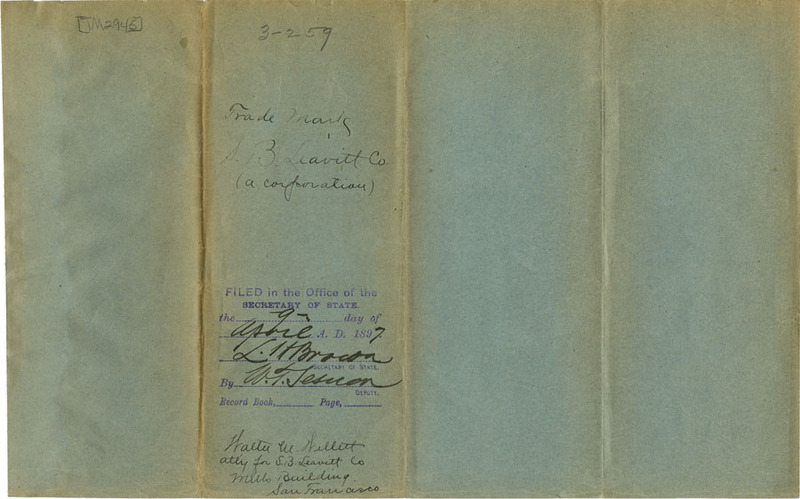 [TM2943]
3-259
Trade Mark
S. B. Leavitt Co
(a corporation)
FILED in the Office of the
SECRETARY OF STATE.
the 9- day of
April A. D. 1897.
L. H. Brown
SECRETARY OF STATE.
By W. T. Sesnon
DEPUTY.
Record Book, Page,
Walter M. Willett
atty for S. B. Leavitt Co
Mills Building
San Francisco